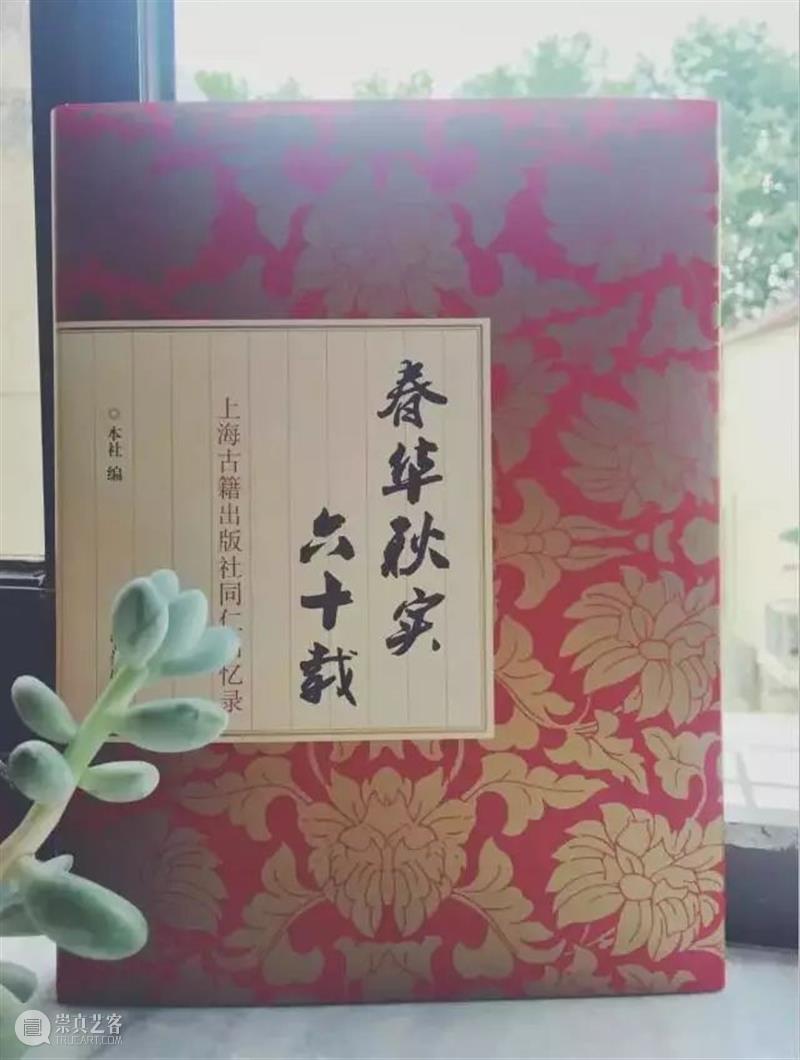 春华秋实
六十载
上海古籍出版社同仁回忆录
◎ 本社 编
崇真艺客
TRUEART.COM